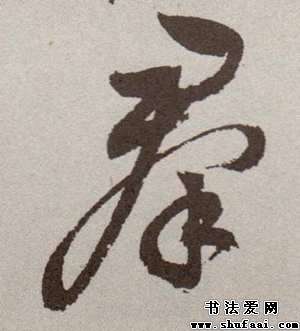 羣
书法爱网
www.shufaai.com